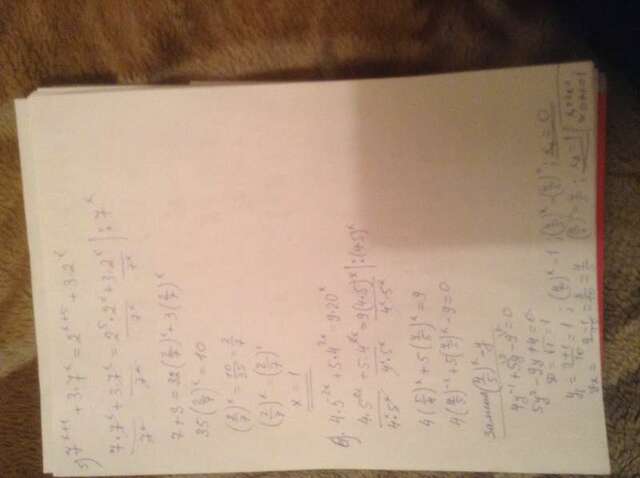 5) 7^{x+1} + 3·7^x = 2^{x+5} + 3·2^x
7·7^x/7^x + 3·7^x/7^x = 2^5·2^x/7^x + 3·2^x/7^x | : 7^x
7+3 = 32(2/7)^x + 3(2/7)^x
35(2/7)^x = 10
(2/7)^x = 10/35 = 2/7
(2/7)^x = (2/7)^1
x = 1
6) 4·5^{2x} + 5·4^{2x} = 9·20^x
4·5^{2x}/4^x·5^x + 5·4^{2x}/4^x·5^x = 9(4·5)^x/4^x·5^x | : (4·5)^x
4(5/4)^x + 5(4/5)^x = 9
4(4/5)^{-x} + 5(4/5)^x - 9 = 0
Замена (4/5)^x = y
4y^{-1} + 5y - 9 = 0
5y² - 9y + 4 = 0
y₁ = 9+1/10 = 1 ; (4/5)^x = 1 ; (4/5)^x = (4/5)^0 ; x₁ = 0